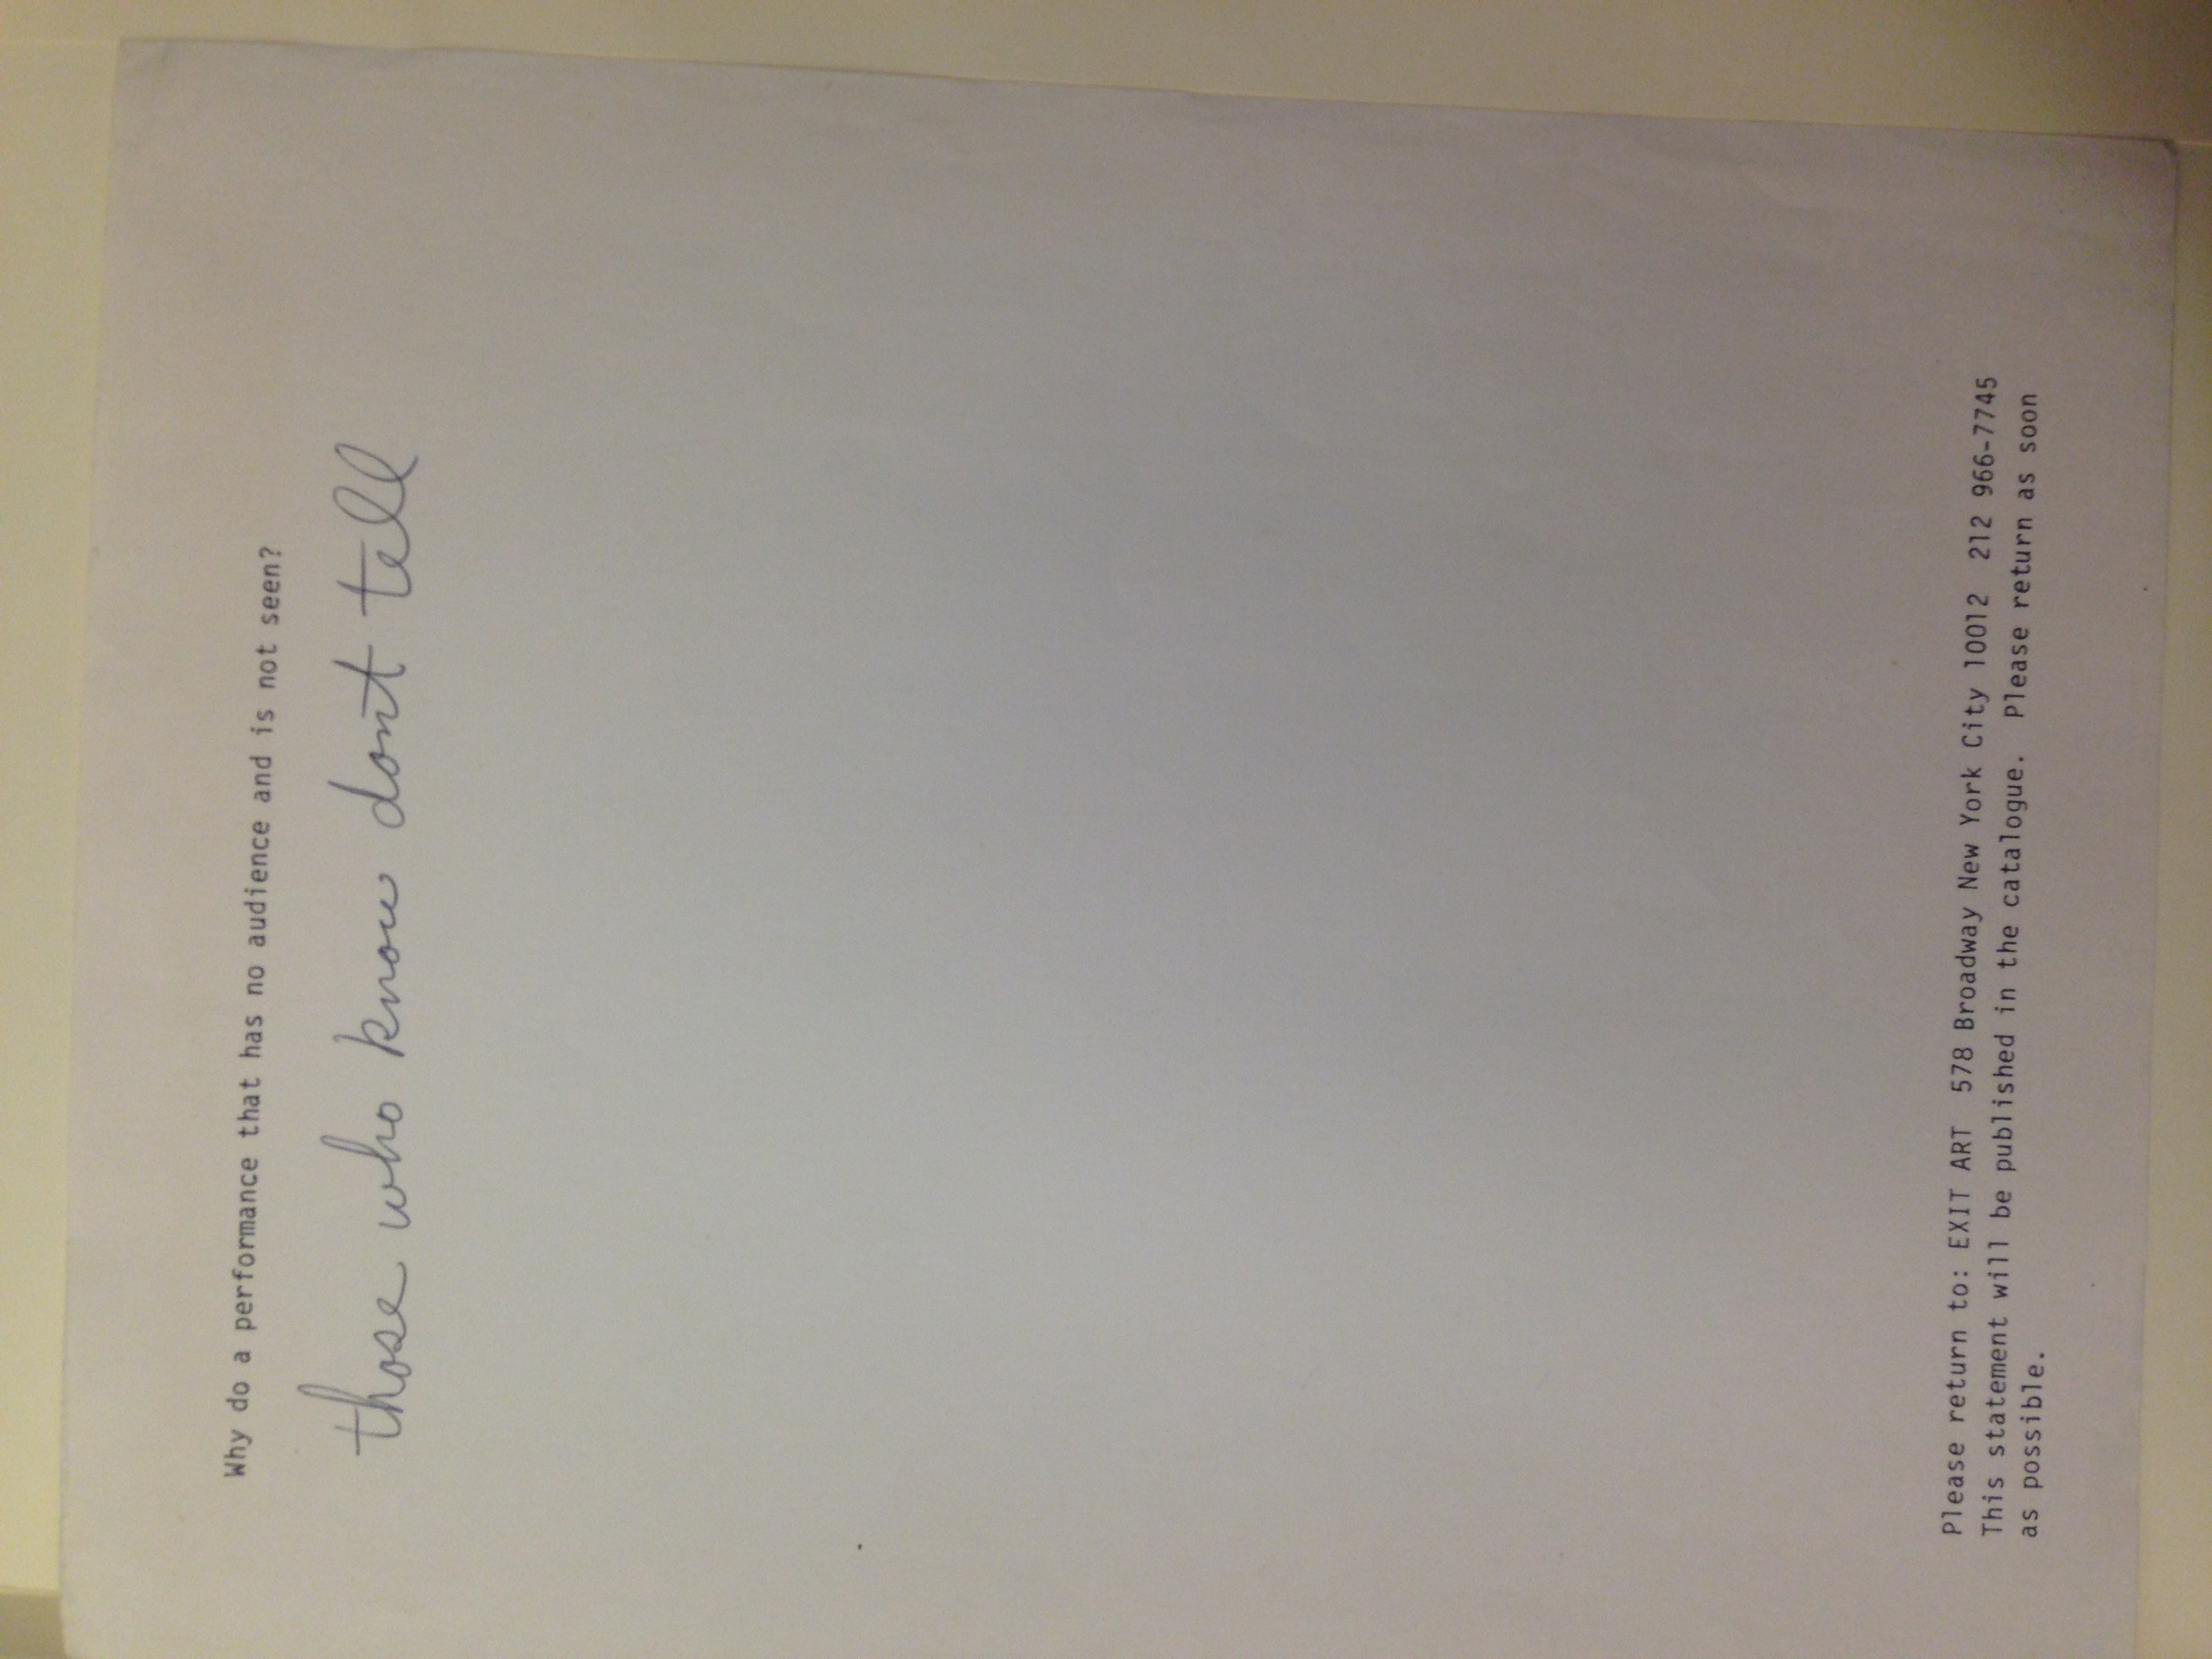 Why do a performance that has no audience and is not seen?
those who know dont tell
Please return to: EXIT ART 578 Broadway New York City 10012 212 966-7745
This statement will be published in the catalogue. Please return as soon
as possible.